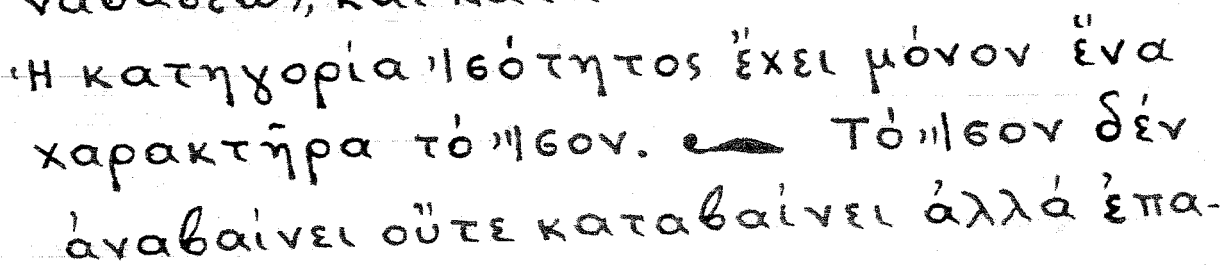 Ἡ κατηγορία Ἰσότητος ἔχει μόνον ἕνα
χαρακτῆρα τό Ἴσον. Τό Ἴσον δέν
ἀναβαίνει οὔτε καταβαίνει ἀλλά ἐπα-